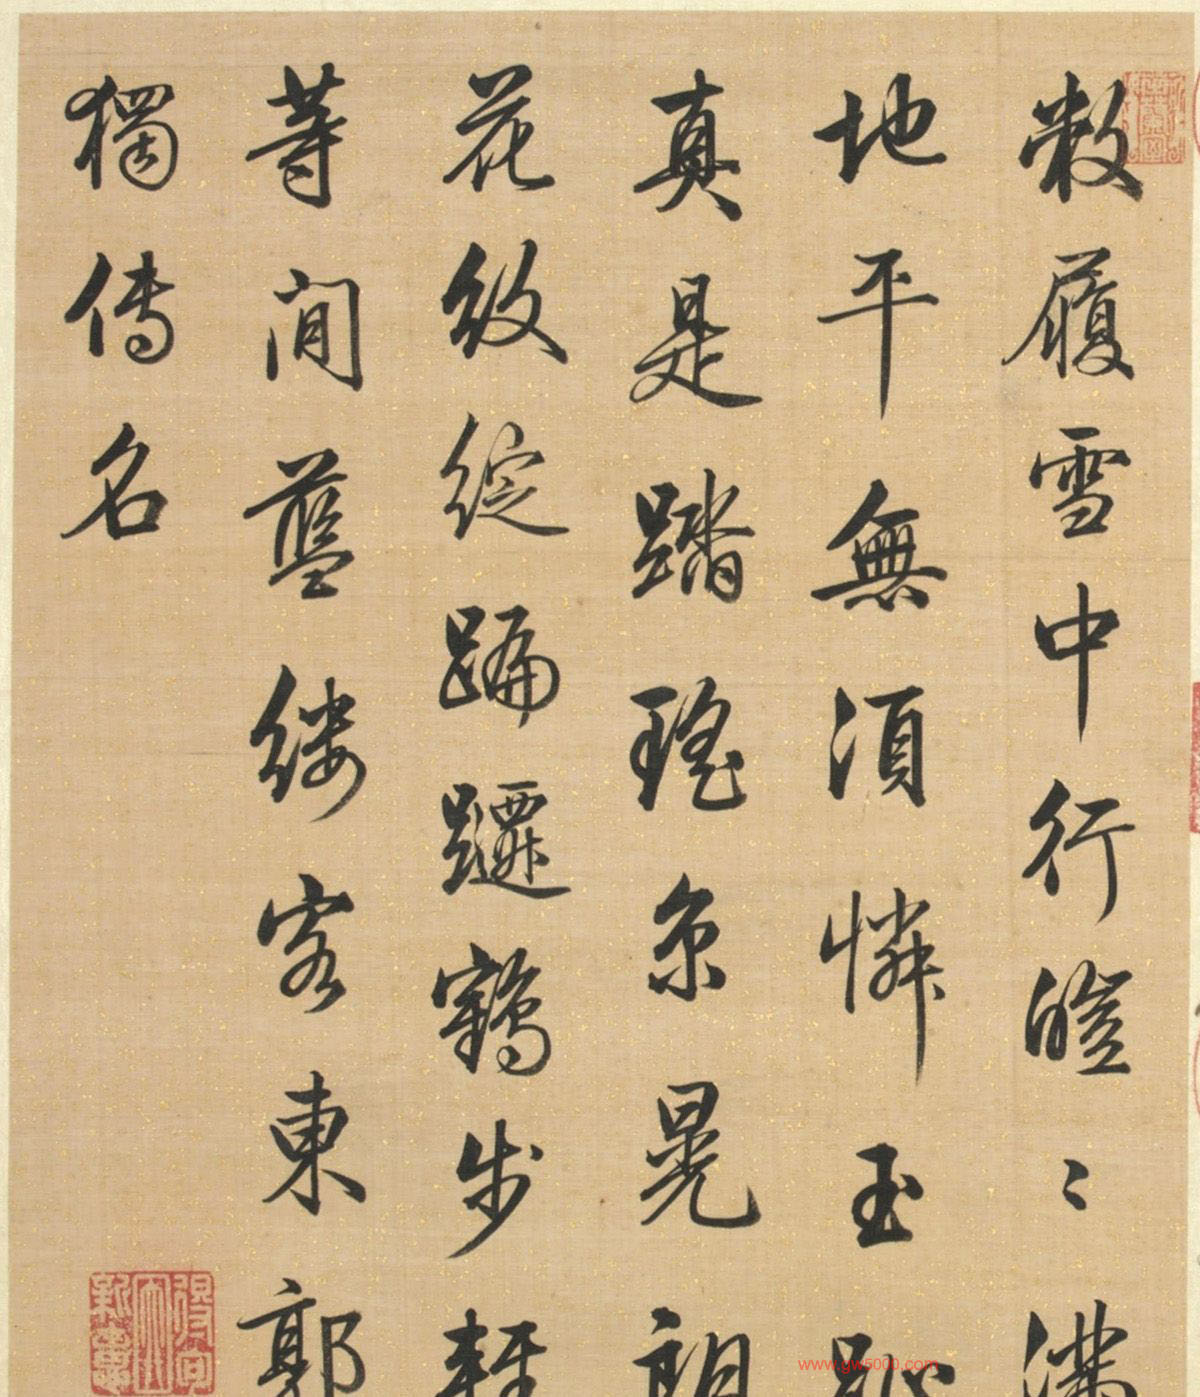 敝履雪中行皚〻滿
地平無須憐玉趾
真是踏瑤京晃朗
花紋綻蹁躚鶴步輕
等閒藍縷客東郭
獨傳名
www.gw5000.com